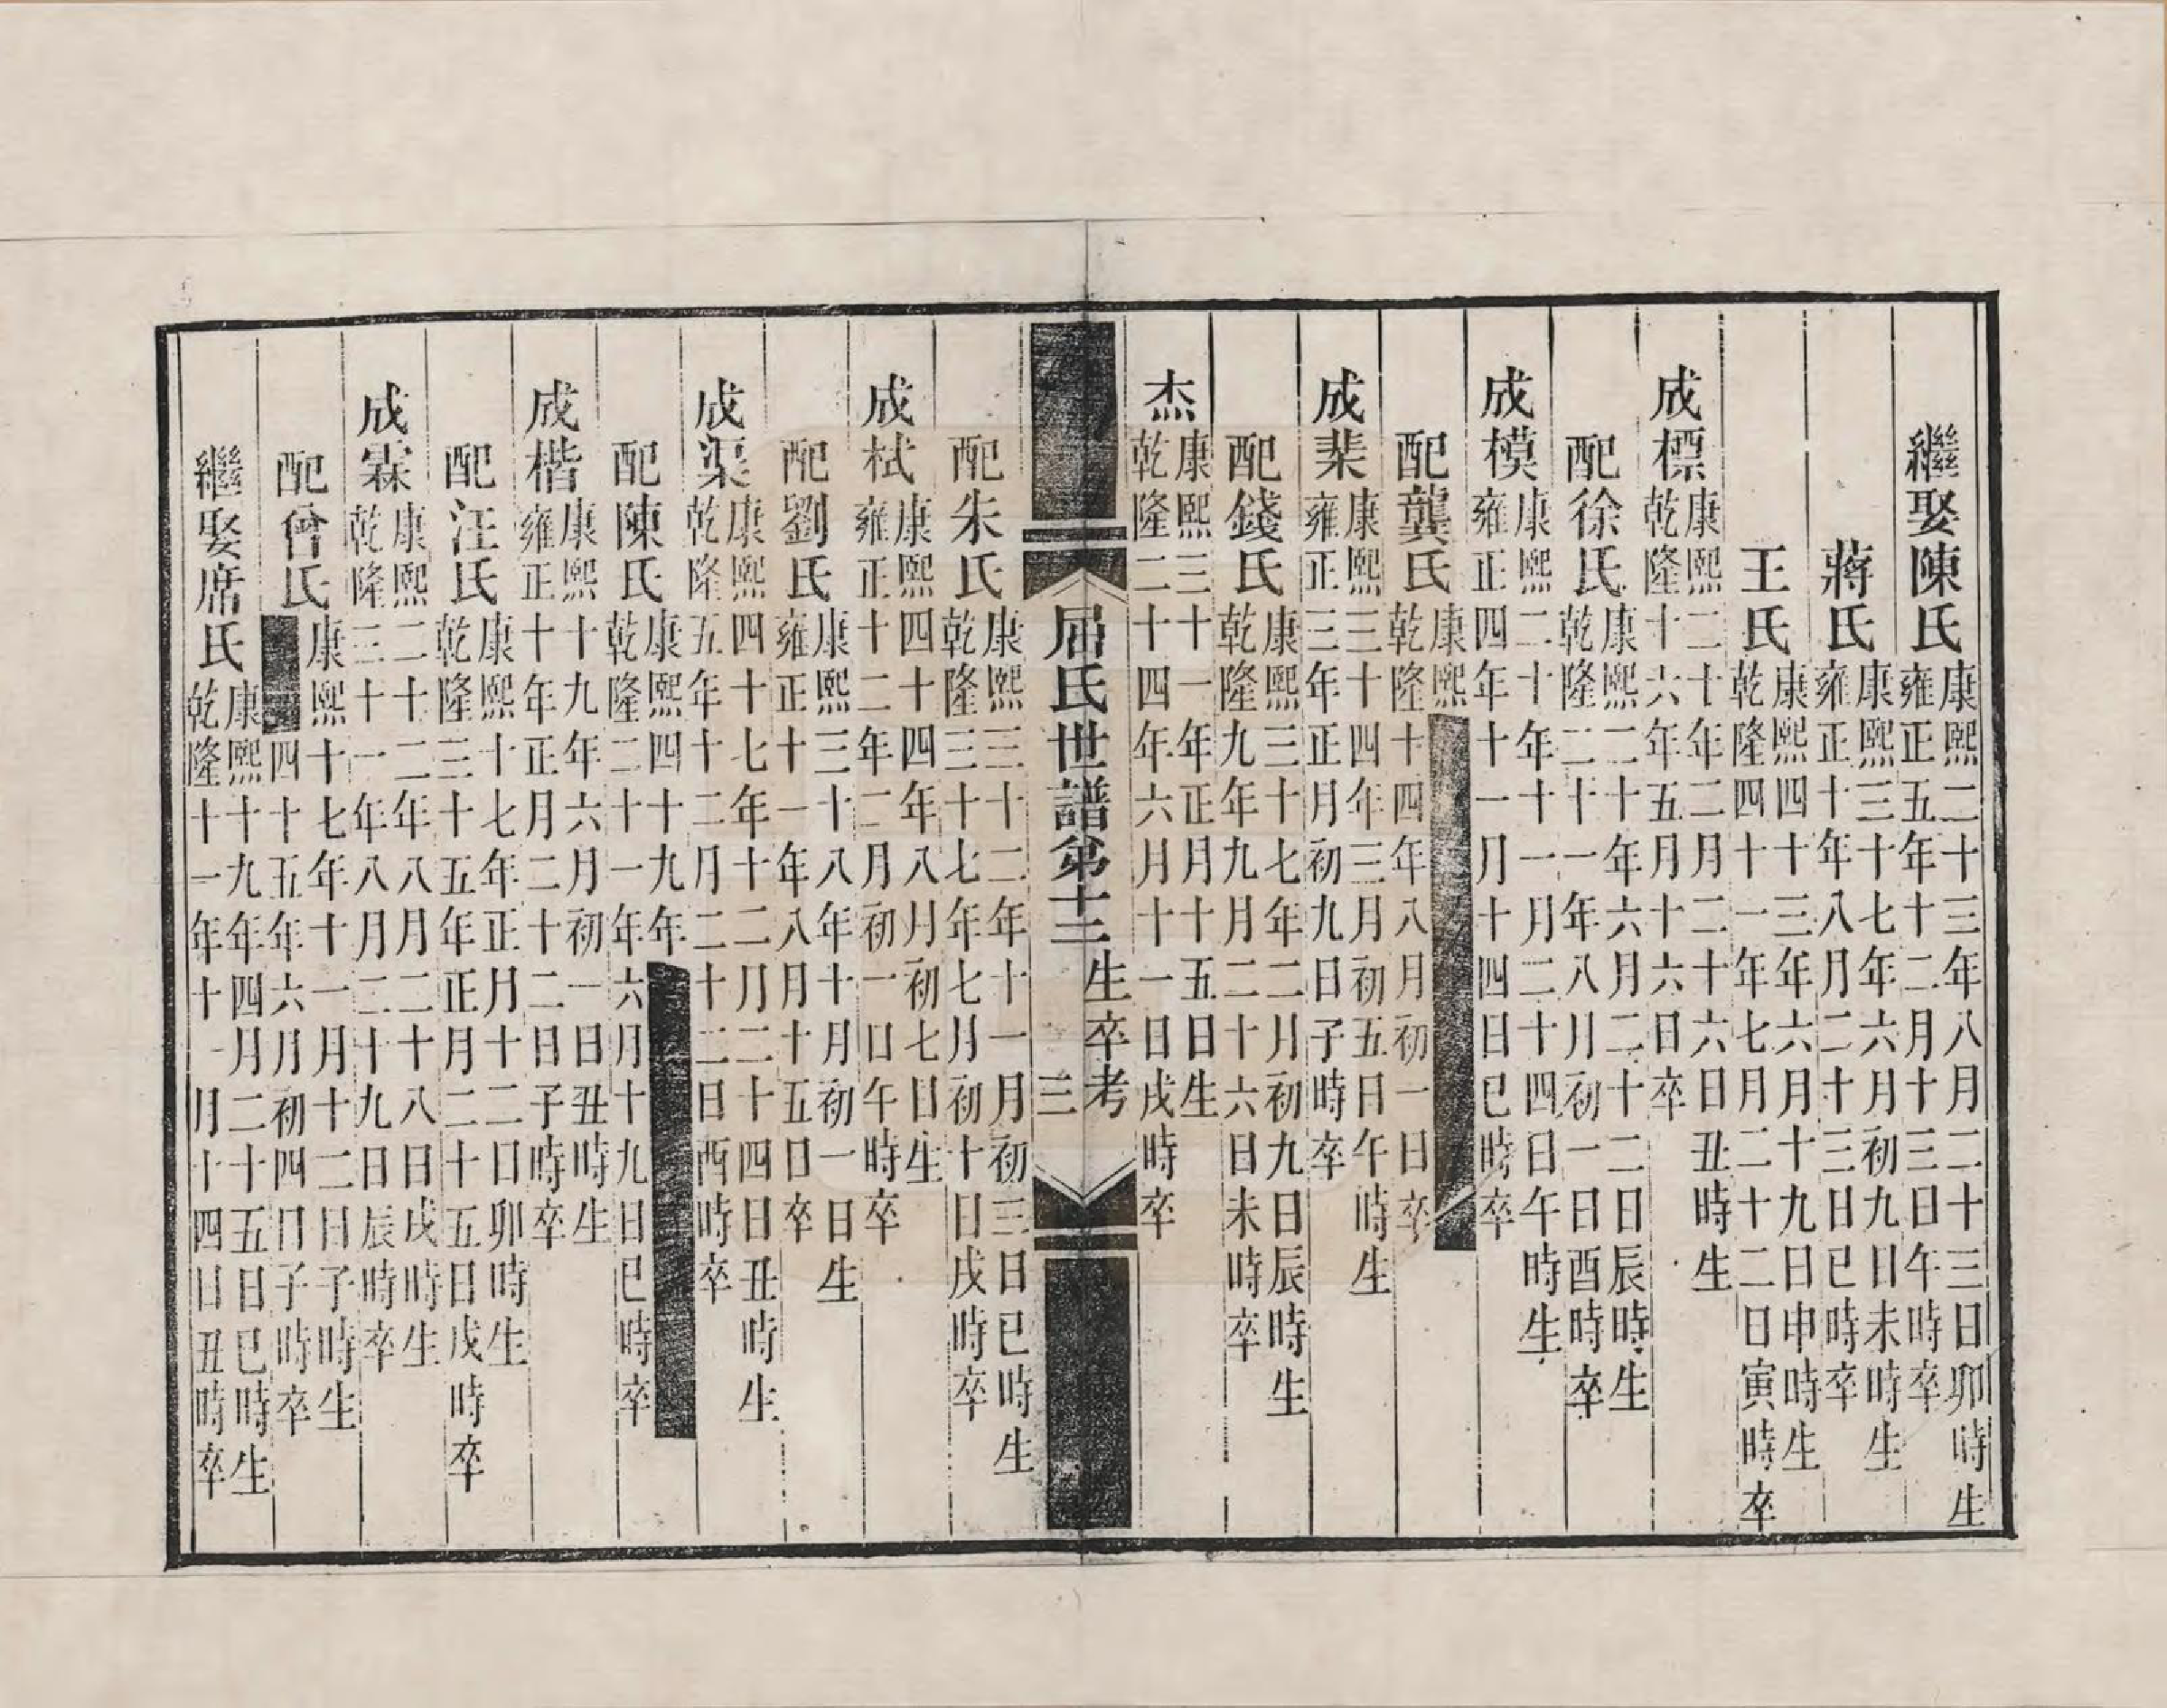 繼娶陳氏康熙二十三年八月二十三日卯時生
雍正五年十二月十三日午時卒
蔣氏康熙三十七年六月初九日未時生
雍正十年八月二十三日巳時卒
王氏康熙四十三年六月十九日申時生
乾隆四十一年七月二十二日寅時卒
成標康熙二十年二月二十六日丑時生
乾隆十六年五月十六日卒
配徐氏康熙二十年六月二十二日辰時生
乾隆二十一年八月初一日酉時卒
成模康熙二十年十一月二十四日午時生
雍正四年十一月十四日巳時卒
配龔氏康熙
乾隆十四年八月初一日卒
成棐康熙三十四年三月初五日午時生
雍正三年正月初九日子時卒
配錢氏康熙三十七年二月初九日辰時生
乾隆九年九月二十六日未時卒
杰康熙三十一年正月十五日生
乾隆二十四年六月十一日戌時卒
屈氏世譜弟十三 生卒考 三
配朱氏康熙三十二年十一月初三日巳時生
乾隆三十七年七月初十日戌時卒
成栻康熙四十四年八月初七日生
雍正十二年二月初一日午時卒
配劉氏康熙三十八年十月初一日生
雍正十一年八月十五日卒
成渠康熙四十七年十二月二十四日丑時生
乾隆五年十二月二十二日酉時卒
配陳氏康熙四十九年
乾隆二十一年六月十九日巳時卒
成楷康熙十九年六月初一日丑時生
雍正十年正月二十二日子時卒
配汪氏康熙十七年正月十二日卯時生
乾隆三十五年正月二十五日戌時卒
成霖康熙二十二年八月二十八日戌時生
乾隆三十一年八月二十九日辰時卒
配曾氏康熙十七年十一月十二日子時生
四十五年六月初四日子時卒
繼娶席氏康熙十九年四月二十五日巳時生
乾隆十一年十一月十四日丑時卒